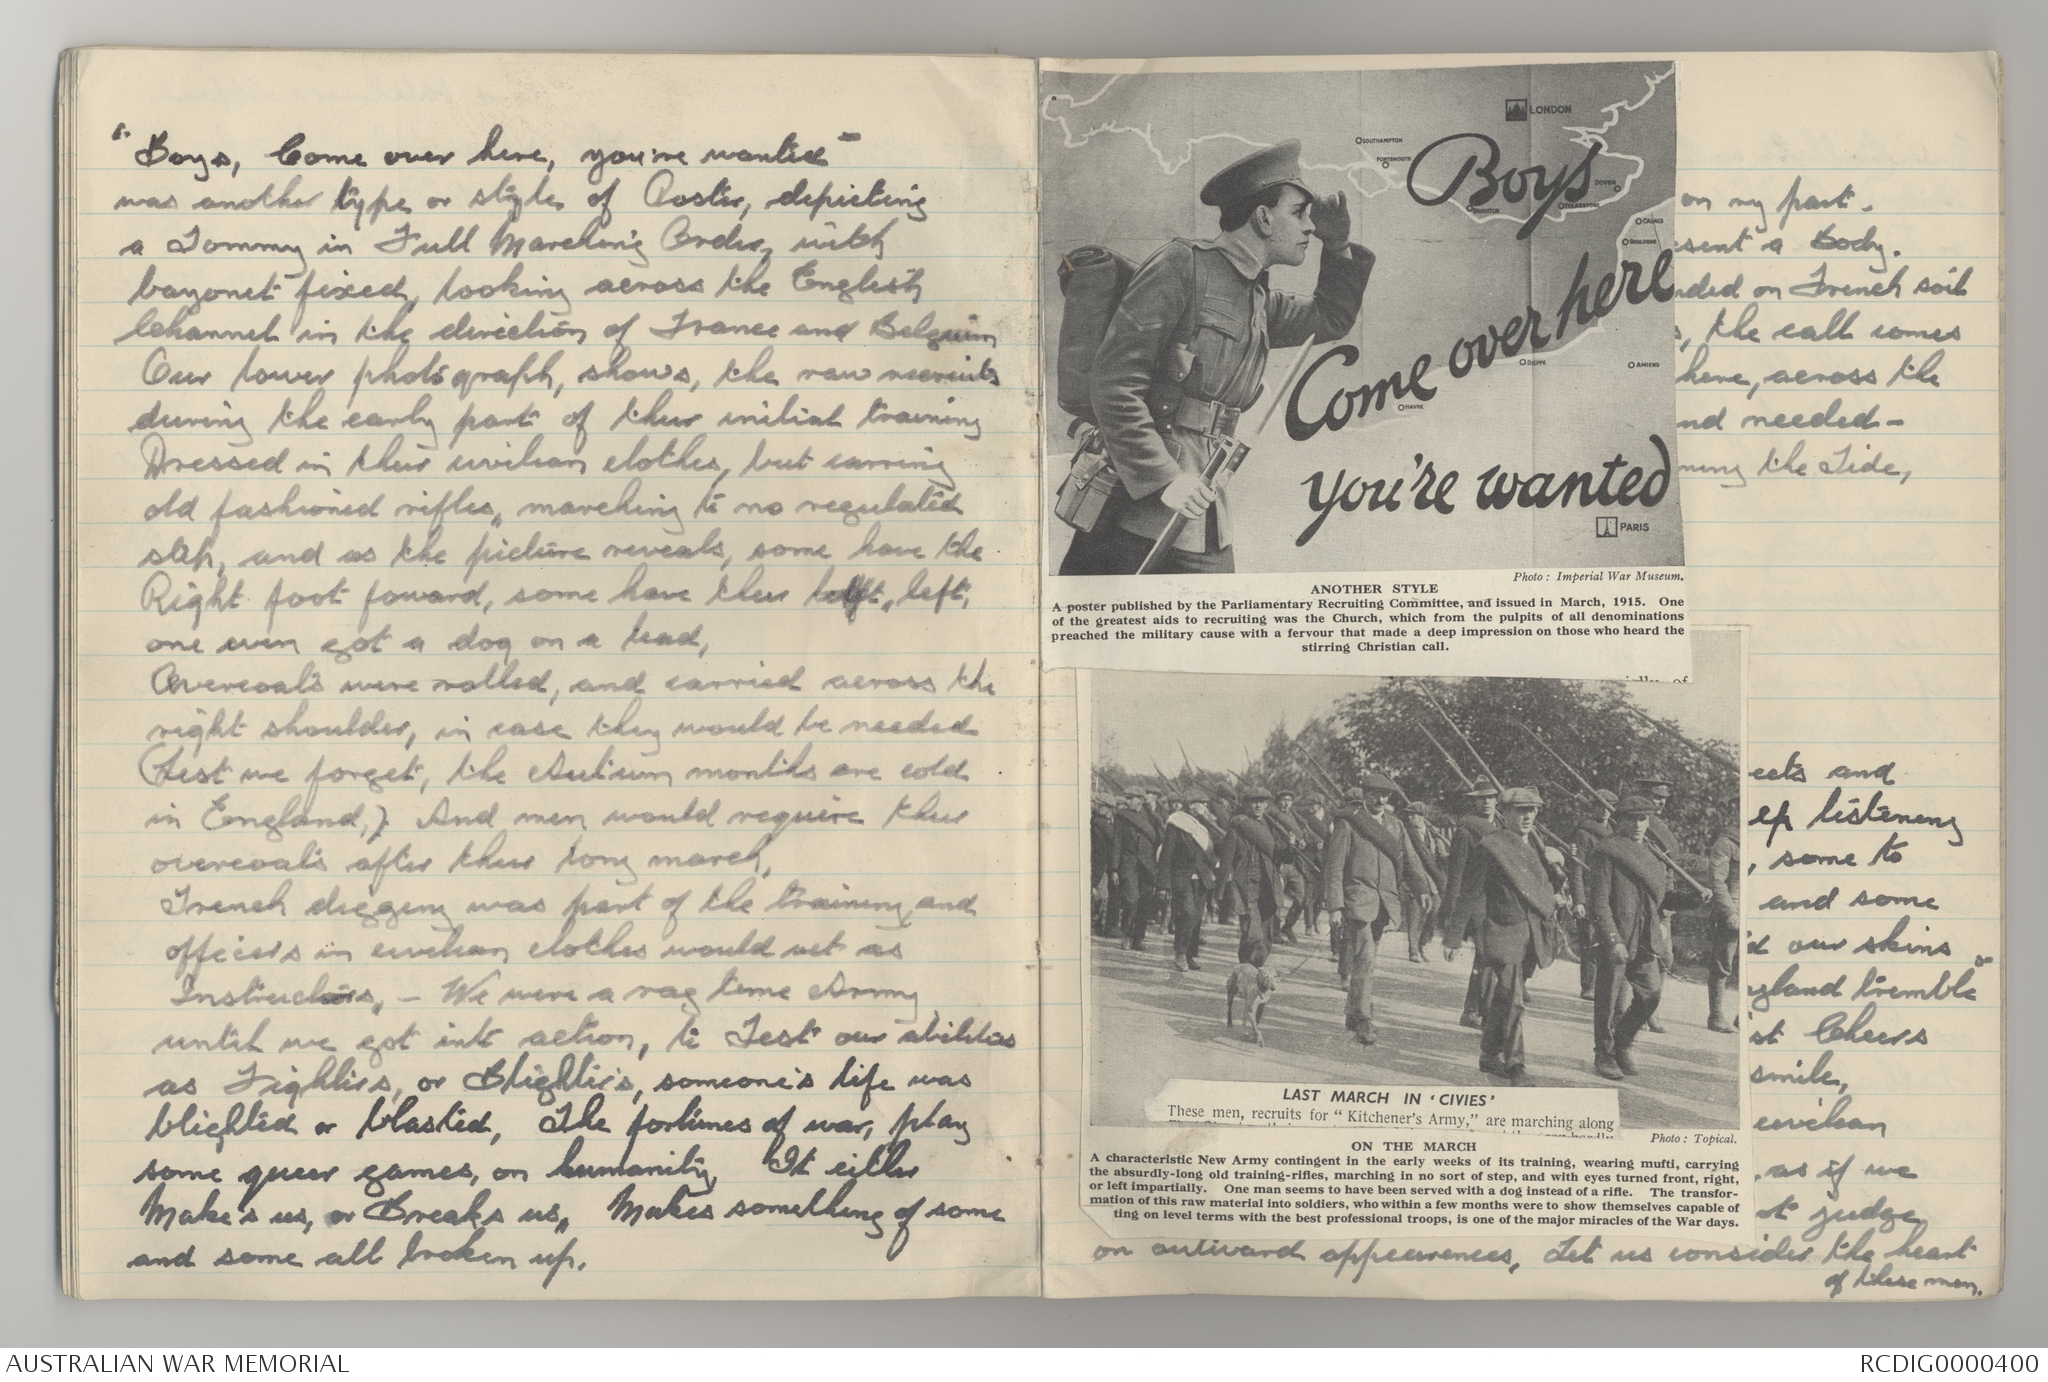 "Boys, Come over here, you're wanted"
was another type or style of Poster, depicting
a Tommy in Full Marching Order, with
bayonet fixed, looking across the English
Channel in the direction of France and Belguim
Our lower photograph, shows, the raw recruits
during the early part of their initial training
Dressed in their civilian clothes, but carring
old fashioned rifles, marching to no regulated
step, and as the picture reveals, some have the
Right foot foward, some have their left, left,
one even got a dog on a lead,
Overcoats were rolled, and carried across the
right shoulder, in case they would be needed
(Lest we forget, the Autum months are cold
in England,) And men would require their
overcoats after their long march,
Trench digging was part of the training, and
officers in civilian clothes would act as
Instructors, - We were a rag time Army
until we got into action, to Test our abilities
as Fighters, or Blighter's, someone's life was
blighted or blasted, The fortunes of war, play
some queer games, on humanity, It either
Make's us, or Breaks us, Makes something of some
and some all broken up.
LONDON
SOUTHAMPTON
PORTSMOUTH
Boys
DOVER
BRIGHTON
FOLKESTONE
CALAIS
BOULOGNE
Come over here
DIEPPE
AMIENS
HAVRE
you're wanted
PARIS
Photo: Imperial War Museum.
ANOTHER STYLE
A poster published by the Parliamentary Recruiting Committee, and issued in March, 1915. One
of the greatest aids to recruiting was the Church, which from the pulpits of all denominations
preached the military cause with a fervour that made a deep impression on those who heard the
stirring Christian call.
LAST MARCH IN 'CIVIES'
These men, recruits for "Kitchener's Army," are marching along
Photo: Topical.
ON THE MARCH
A characteristic New Army contingent in the early weeks of its training, wearing mufti, carrying
the absurdly-long old training-rifles, marching in no sort of step, and with eyes turned front, right,
or left impartially. One man seems to have been served with a dog instead of a rifle. The transfor-
mation of this raw material into soldiers, who within a few months were to show themselves capable of
ting on level terms with the best professional troops, is one of the major miracles of the War days.
on my part.
sent a Body.
nded on French soil
, the call comes
here, across the
nd needed-
ning the Tide,
eets and
ep listening
, some to
and some
our skins
gland tremble"
st Cheers
smile,
civilian
, as if we
ot judge
on outward appearences, Let us consider the heart
of these men.
AUSTRALIAN WAR MEMORIAL
RCDIG0000400